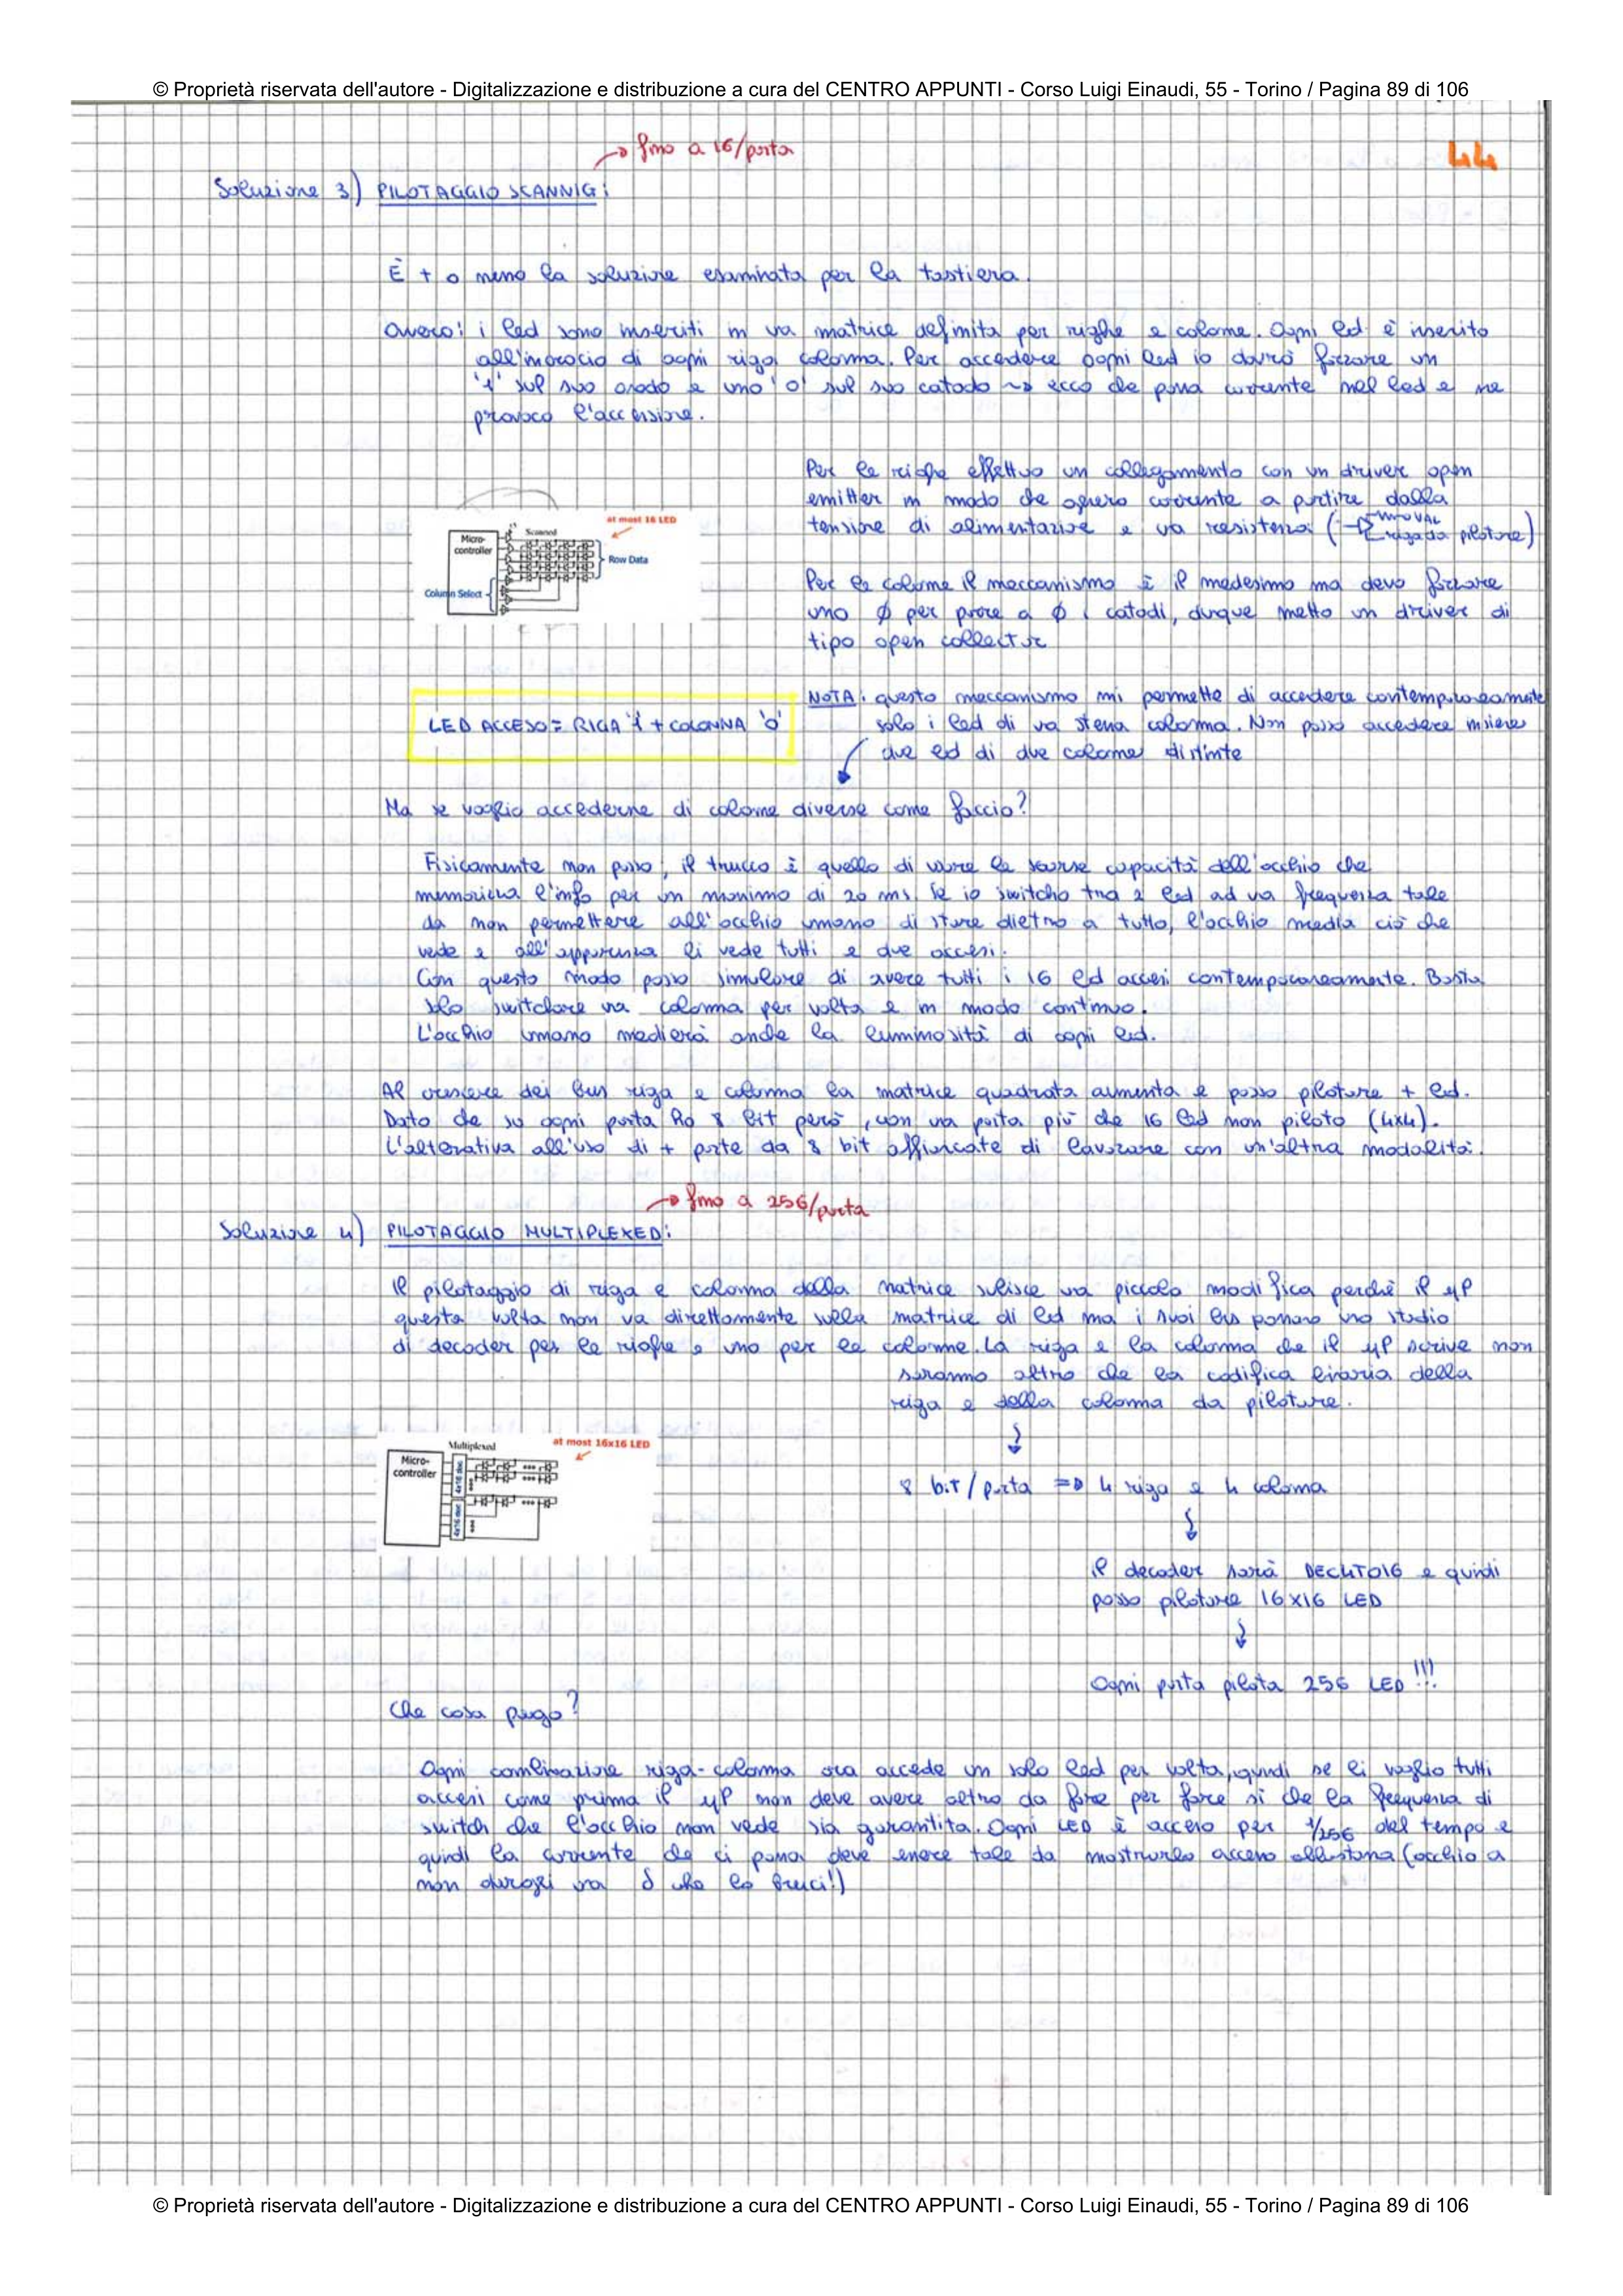 © Proprietà riservata dell'autore - Digitalizzazione e distribuzione a cura del CENTRO APPUNTI - Corso Luigi Einaudi, 55 - Torino / Pagina 89 di 106
→ fino a 16/porta
44
Soluzione 3) PILOTAGGIO SCANNIG:
È + o meno la soluzione esaminata per la tastiera.
ovvero: i led sono inseriti in va matrice definita per righe e colonne. Ogni led è inserito
all'incrocio di ogni riga colonna. Per accedere ogni led io dovrò forzare un
'1' sul suo anodo e uno '0' sul suo catodo ~> ecco che passa corrente nel led e ne
provoco l'accensione.
Per le righe effettuo un collegamento con un driver open
emitter in modo che genero corrente a partire dalla
tensione di alimentazione e va resistenza ( riga da pilotare)
Per le colonne il meccanismo è il medesimo ma devo forzare
uno ø per porre a ø i catodi, dunque metto un driver di
tipo open collector
at most 16 LED
Scanned
Micro-
controller
Row Data
Column Select
NOTA: questo meccanismo mi permette di accedere contemporaneamente
solo i led di va stessa colonna. Non posso accedere insieme
due led di due colonne distinte
LED ACCESO = RIGA '1' + COLONNA '0'
Ma se voglio accederne di colonne diverse come faccio?
Fisicamente non posso, il trucco è quello di usare le scarse capacità dell'occhio che
memorizza l'info per un minimo di 20 ms. Se io switcho tra 2 led ad va frequenza tale
da non permettere all'occhio umano di stare dietro a tutto, l'occhio media ciò che
vede e all'apparenza li vede tutti e due accesi.
Con questo modo posso simulare di avere tutti i 16 led accesi contemporaneamente. Basta
solo switchare va colonna per volta e in modo continuo.
L'occhio umano medierà anche la luminosità di ogni led.
Al crescere dei bus riga e colonna la matrice quadrata aumenta e posso pilotare + led.
Dato che su ogni porta ho 8 bit però, con va porta più che 16 led non piloto (4x4).
L'alterativa all'uso di + porte da 8 bit affiancate di lavorare con un'altra modalità.
→ fino a 256/porta
Soluzione 4) PILOTAGGIO MULTIPLEXED:
Il pilotaggio di riga e colonna della matrice subisce va piccola modifica perchè il µP
questa volta non va direttamente sulla matrice di led ma i suoi bus passano uno stadio
di decoder per le righe e uno per le colonne. La riga e la colonna che il µP scrive non
saranno altro che la codifica binaria della
riga e della colonna da pilotare.
Multiplexed
at most 16x16 LED
Micro-
controller
4x16 dec
4x16 dec
8 bit/porta => 4 riga e 4 colonna
il decoder sarà DEC4TO16 e quindi
posso pilotare 16x16 LED
Ogni porta pilota 256 LED!!!
Che cosa pago?
Ogni combinazione riga-colonna ora accede un solo led per volta, quindi se li voglio tutti
accesi come prima il µP non deve avere altro da fare per fare sì che la frequenza di
switch che l'occhio non vede sia garantita. Ogni LED è acceso per 1/256 del tempo e
quindi la corrente che ci passa deve essere tale da mostrarlo acceso all'istana (occhio a
non dargli va δ che lo bruci!)
© Proprietà riservata dell'autore - Digitalizzazione e distribuzione a cura del CENTRO APPUNTI - Corso Luigi Einaudi, 55 - Torino / Pagina 89 di 106